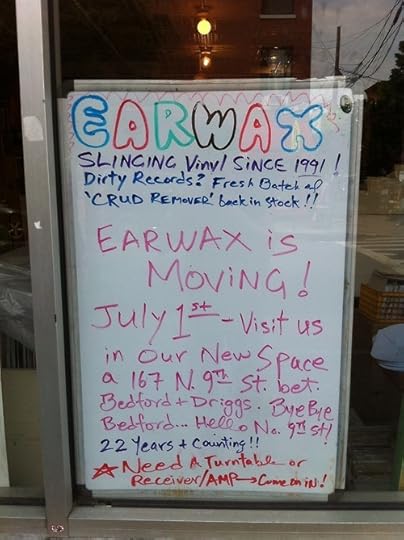 EARWAX
SLINGING Vinyl SINCE 1991!
Dirty Records? Fresh Batch of
'CRUD REMOVER' back in stock!!
EARWAX is
MOVING!
July 1st - Visit us
in Our New Space
a 167 N. 9th St. bet.
Bedford + Driggs. Bye Bye
Bedford... Hello No. 9th St!
22 Years + Counting!!
☆ Need A Turntable or
Receiver/AMP → Come on iN!